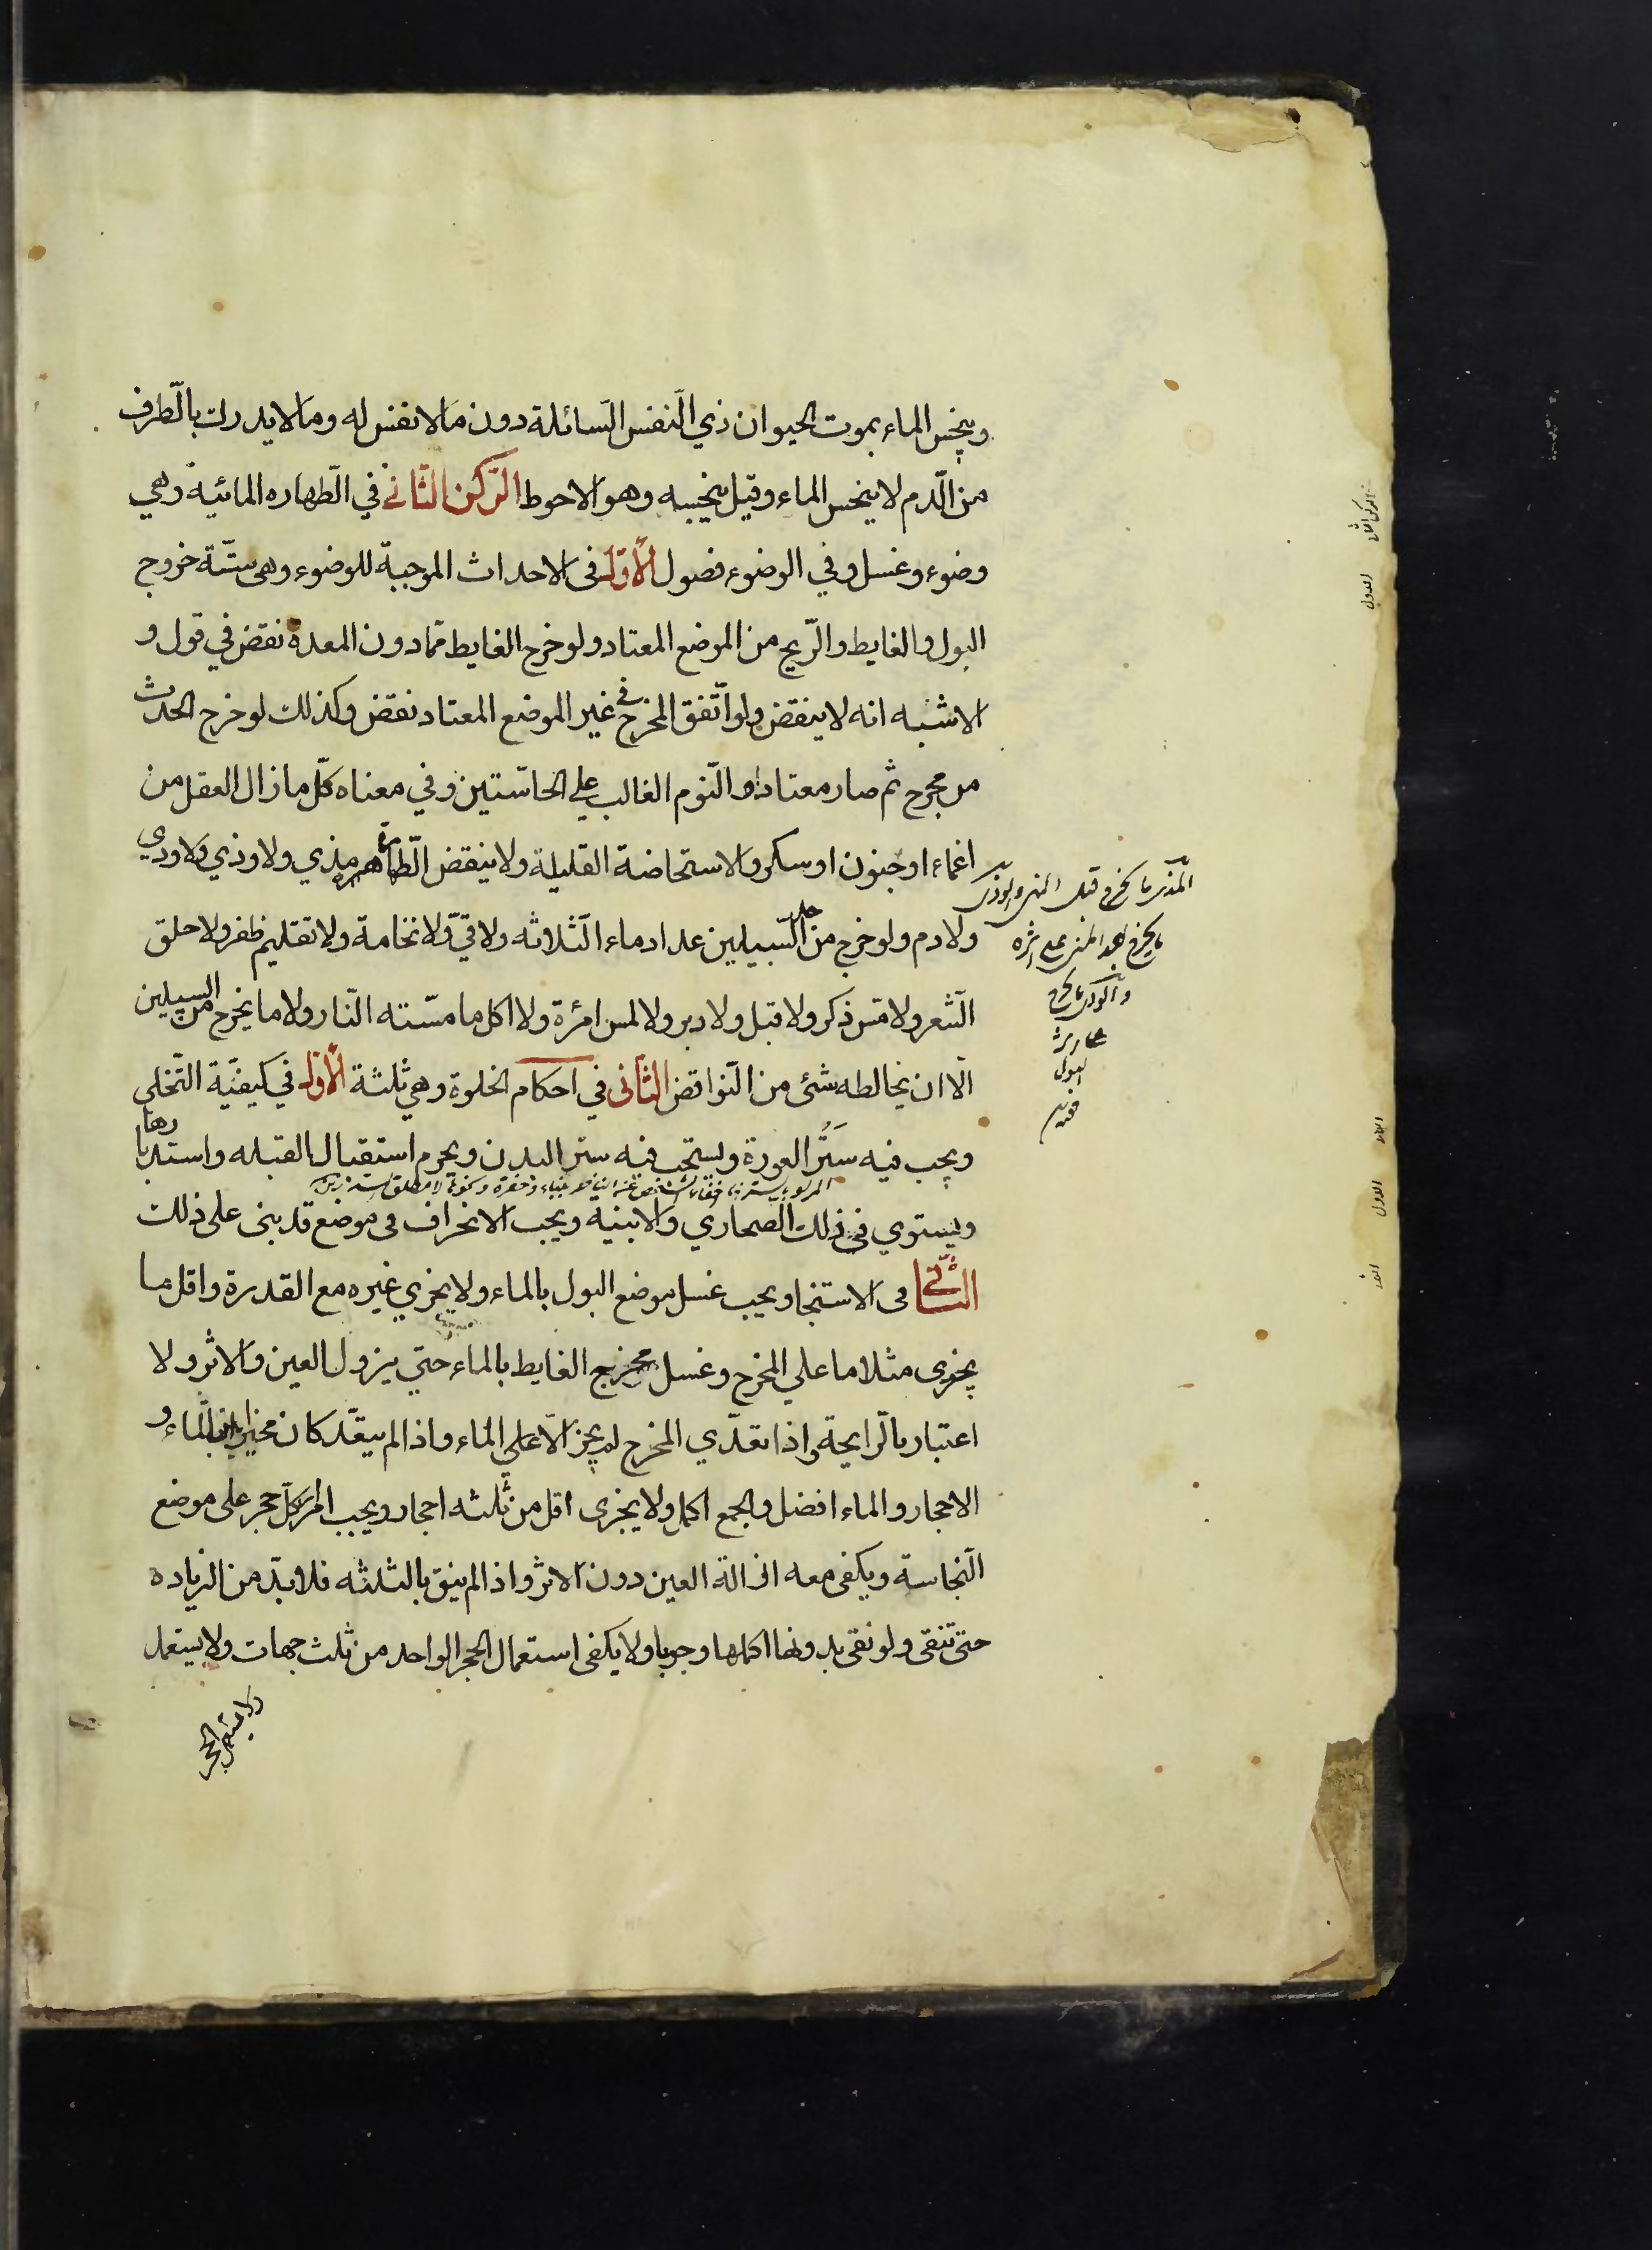 وينجس الماء بموت الحيوان ذي النّفس السّائلة دون ما لا نفس له وما لا يدرك بالطّرف
من الدّم لا ينجس الماء وقيل ينجسه وهو الاحوط الرّكن الثّاني في الطّهاره المائية وهي
وضوء وغسل وفي الوضوء فصول الأوّل في الاحداث الموجبة للوضوء وهي ستّة خروج
البول والغايط والرّيح من الموضع المعتاد ولو خرج الغايط ممّا دون المعدة نقض في قول و
الاشبه انه لا ينقض ولو اتّفق المخرج في غير الموضع المعتاد نقض وكذلك لو خرج الحدث
من مجرح ثم صار معتادا والنّوم الغالب علي الحاسّتين وفي معناه كلّ ما زال العقل من
اغماء او جنون او سكر والاستحاضة القليلة ولا ينقض الطّهارة مذي ولا وذي ولا ودي
ولا دم ولو خرج من احد السّبيلين عدا دماء الثّلاثه ولا قيّ ولا نخامة ولا تقليم ظفر ولا حلق
الشّعر ولا مسّ ذكر ولا قبل ولا دبر ولا لمس امرئة ولا اكل ما مسّته النّار ولا ما يخرج من السبيلين
الّا ان يخالطه شئ من النّواقض الثّاني في احكام الخلوة وهي ثلثة الأوّل في كيفيّة التّخلي
ويجب فيه سَتْر العورة ويستحب فيه ستر البدن ويحرم استقبال القبله واستدبارها
ويستوي في ذلك الصحاري والابنيه ويجب الانحراف في موضع قد بني على ذلك
الثّاني في الاستنجا ويجب غسل موضع البول بالماء ولا يجزي غيره مع القدرة واقل ما
يجزي مثلا ما علي المخرج وغسل مخرج الغايط بالماء حتي يزول العين والاثر ولا
اعتبار بالرّايحة واذا تعدّي المخرج لم يجز الّا علي الماء واذا لم يتعّد كان مخيرا بين الماء و
الاحجار والماء افضل والجمع اكمل ولا يجزي اقل من ثلثه احجار ويجب امرار كلّ حجر على موضع
النّجاسة ويكفي معه ازالة العين دون الاثر واذا لم ينق بالثلثه فلا بدّ من الزياده
حتي تنقى ولو نقي بدونها اكملها وجوبا ولا يكفي استعمال الحجر الواحد من ثلث جهات ولا يستعمل
ولا يستعمل الحجر
المذي ما يخرج قبل المني والوذي
ما يخرج بعد المني علي اثره
والودي ما يخرج
علي اثر
البول